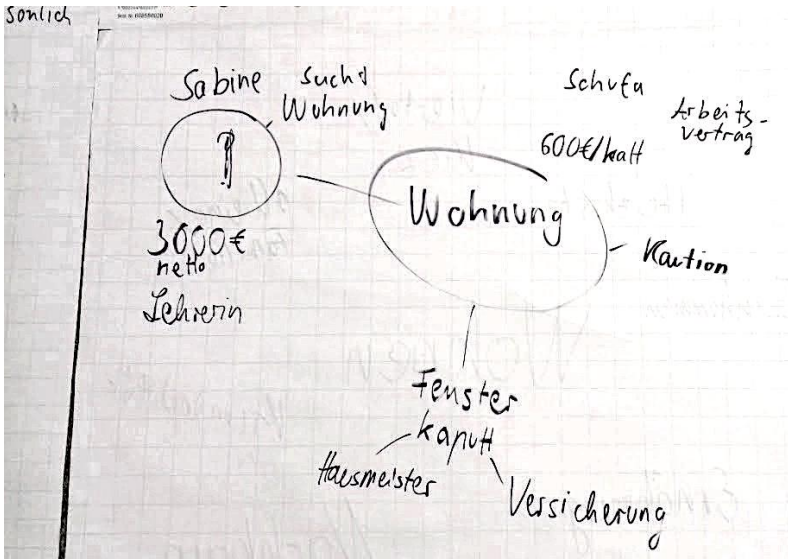 sönlich
Sabine
sucht
Wohnung
3000€
netto
Lehrerin
Wohnung
Schufa
Arbeits-
vertrag
600€/kalt
Kaution
Fenster
kaputt
Hausmeister
Versicherung